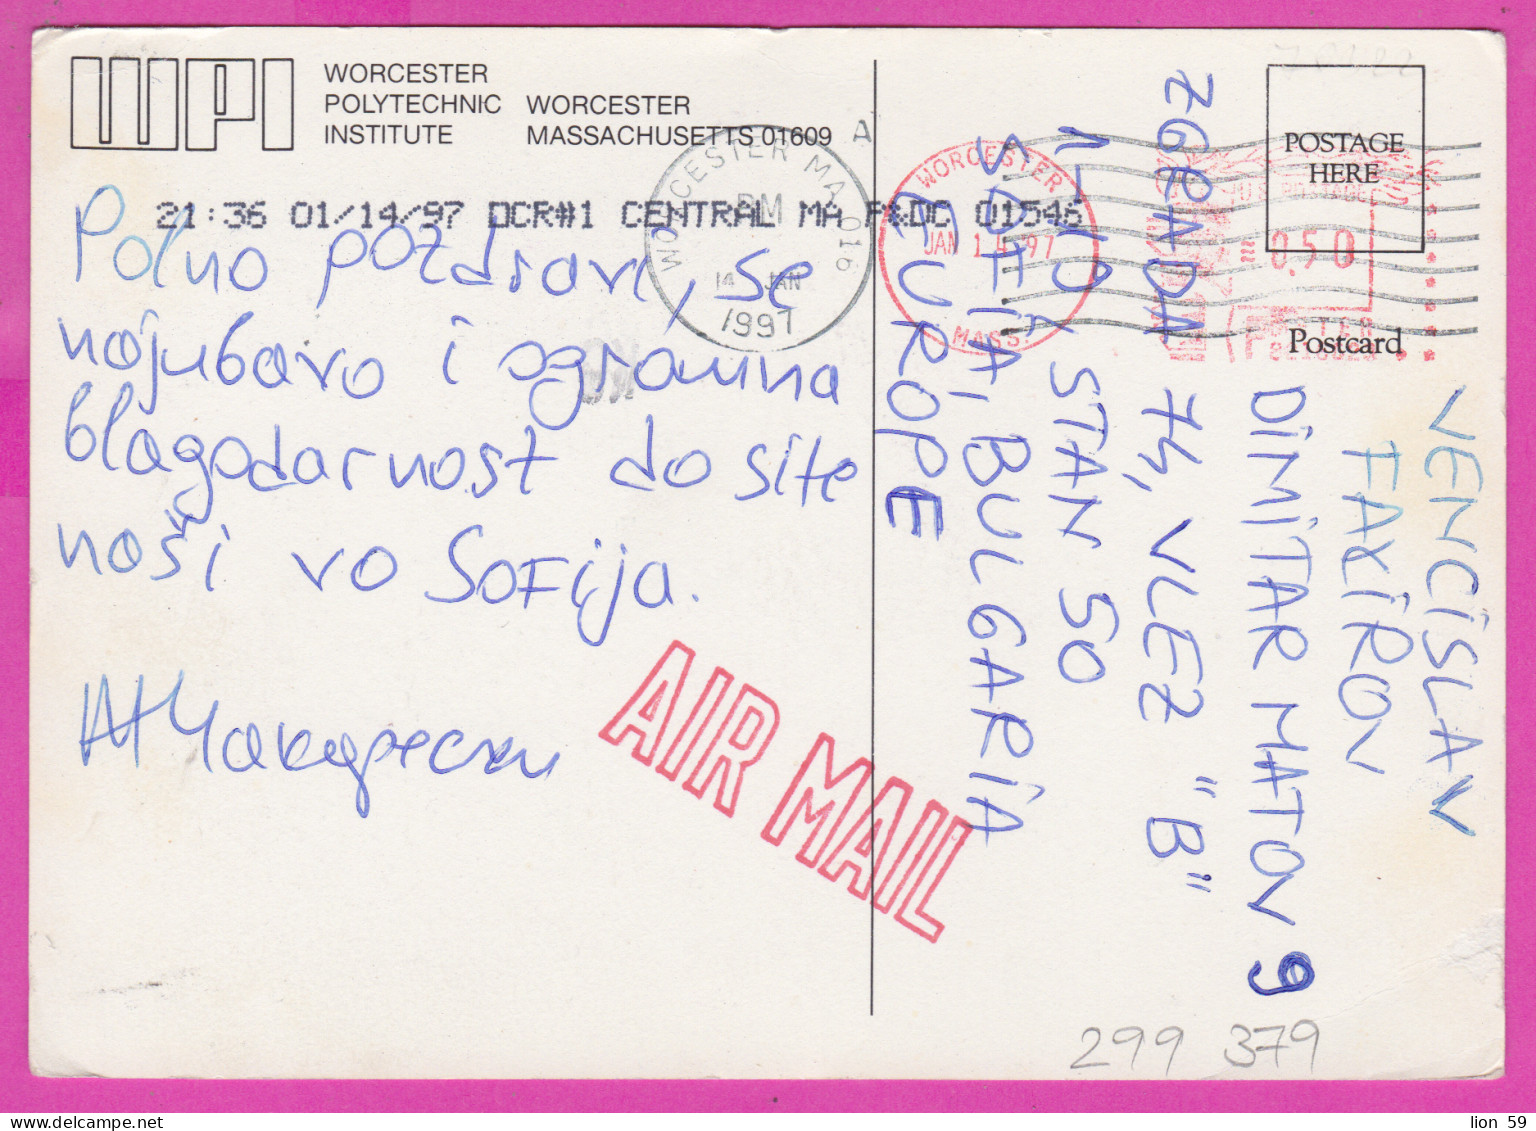 WPI
WORCESTER
POLYTECHNIC
INSTITUTE
WORCESTER
MASSACHUSETTS 01609
A
WORCESTER MA 016
PM
14 JAN
1997
21:36 01/14/97 DCR#1 CENTRAL MA P&DC 01546
WORCESTER
JAN 14 '97
MASS.
U.S. POSTAGE
0.50
POSTAGE
HERE
Postcard
Polno pozdravi, se
najubavo i ogromna
blagodarnost do site
naši vo Sofija.
AIR MAIL
VENCISLAV
DIMITAR MATOV 9
ZGRADA 74, VLEZ "B"
STAN 50
SOFIA, BULGARIA
EUROPE
299 379
lion 59